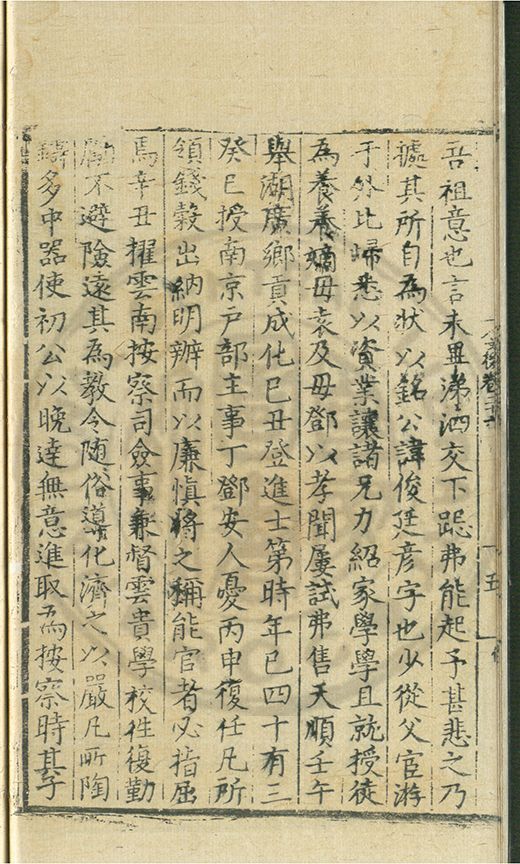 吾祖意也言未畢涕泗交下跽弗能起予甚悲之乃
據其所自為狀以銘公諱俊廷彦字也少從父宦游
于外比歸悉以資業讓諸兄力紹家學學且就授徒
為養養嫡母袁及母鄧以孝聞屢試弗售天順壬午
舉湖廣鄉貢成化己丑登進士第時年已四十有三
癸巳授南京戸部主事丁鄧安人憂丙申復任凡所
領錢穀出納明辨而以廉慎將之稱能官者必指屈
焉辛丑擢雲南按察司僉事兼督雲貴學校徃復勤
勵不避險遠其為教令随俗導化濟之以嚴凡所陶
鑄多中器使初公以晚達無意進取為按察時其子
卷二十
五